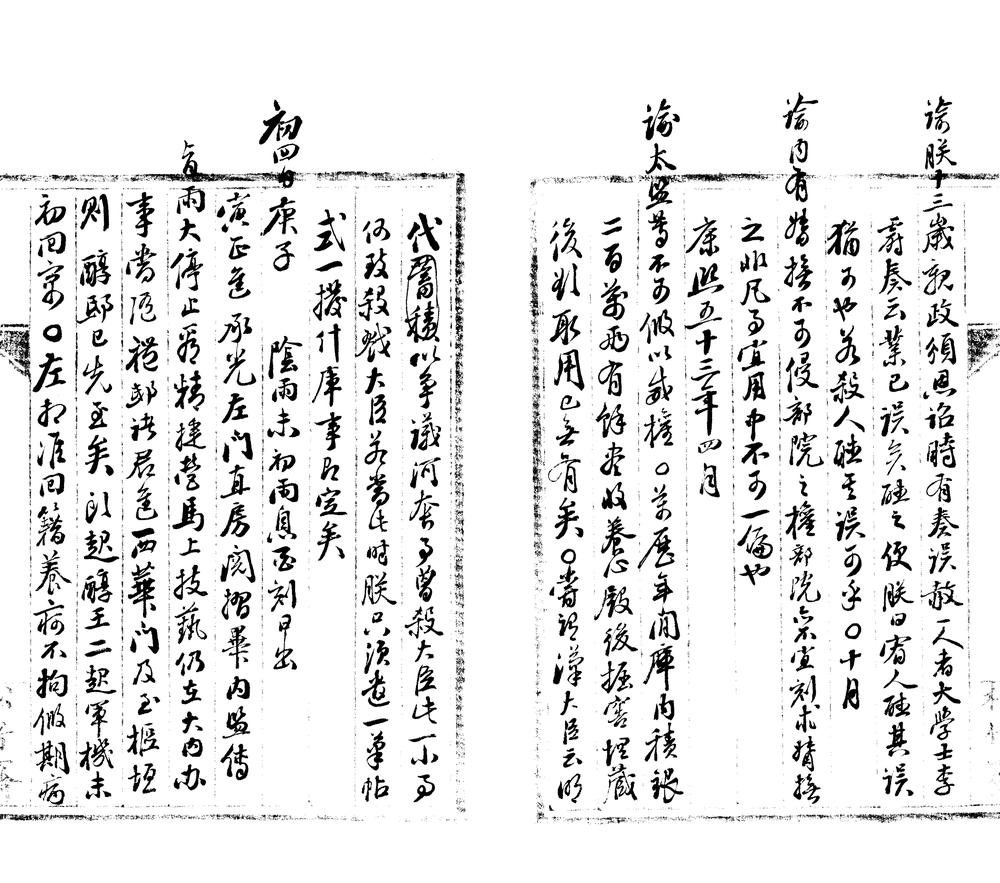 諭朕十三歲親政頒恩詔時有奏誤赦一人者大學士李
霨奏云業已誤矣雖之便朕曰宥人雖其誤
猶可也若殺人雖其誤可乎〇十月
諭內有督撫不可侵部院之權部院亦不宜刻求督撫
之非凡事宜用中不可一偏也
康熙五十三年四月
諭太監等不可假以威權〇萬曆年間庫內積銀
二百萬兩有餘盡收養心殿後掘窖埋藏
後到取用已無有矣〇嘗謂漢大臣云明
代蓄積以爭議河套事嘗殺大臣此一小事
何致殺戮大臣若當此時朕只須書一筆帖
式一撥什庫事即定矣
初四日庚子 陰雨未初雨息酉刻日出
寅正進承光左門直房閱摺畢內監傳
旨雨大停止看精捷營馬上技藝仍在大內辦
事嘗偕禮邸諸君進西華門及至樞垣
則醇邸已先至矣頭起醇王二起軍機未
初回寓〇左相准回籍養疴不拘假期病